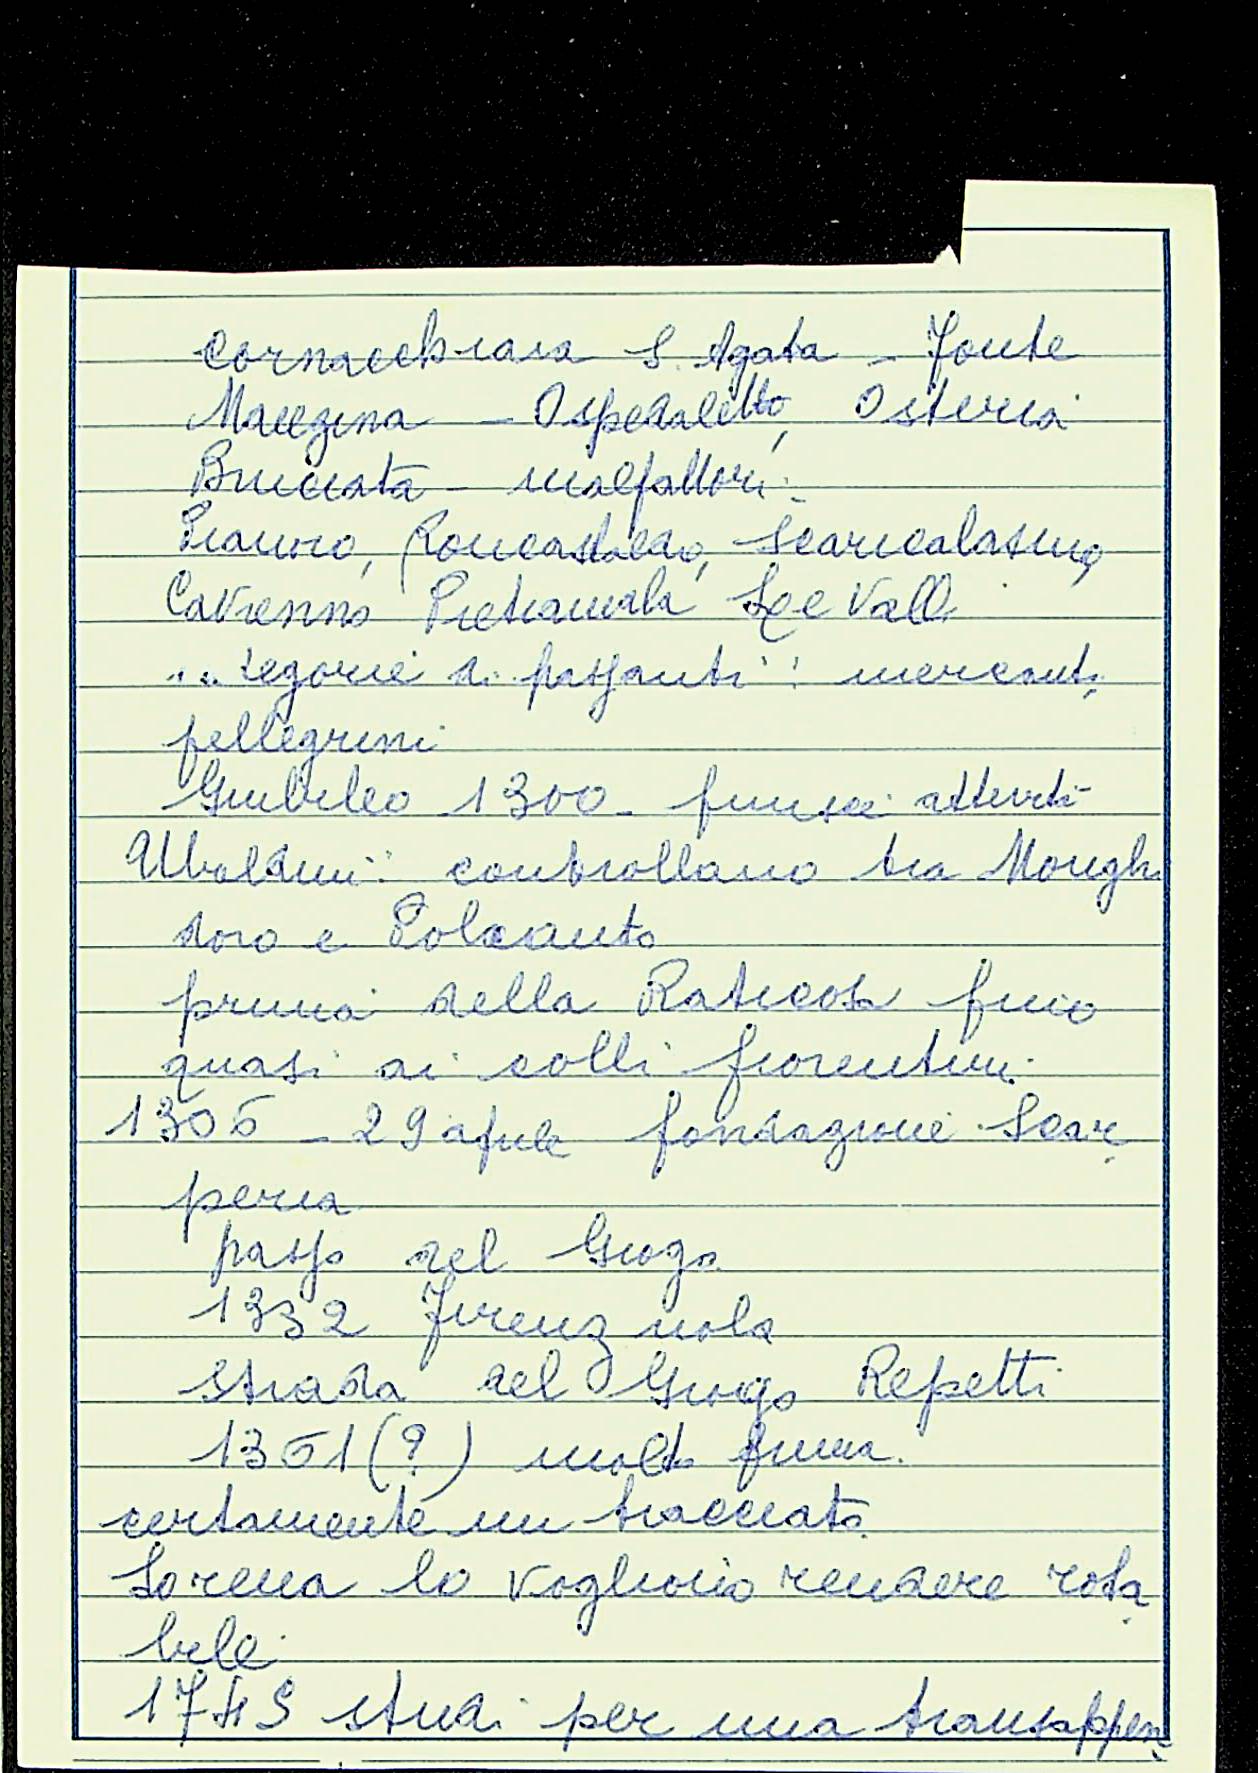 Cornacchiaia S. Agata - Fonte
Macegina - Ospedaletto, Osteria
Bruciata - malfattori.
Pianoro, Roncastaldo, Scaricalasino,
Cavrenno Pietramala Le Valli
categorie di passanti: mercanti,
pellegrini
Giubileo 1300 -
Ubaldini: controllano tra Mongh
doro e Polcanto
prima della Raticosa fino
quasi ai colli fiorentini.
1306 - 29 aprile fondazione Scar
peria
passo del Giogo
1332 Firenzuola
strada del Giogo Repetti
1361 (?) molto prima.
certamente un tracciato
Lorena lo vogliono rendere rota
bile
1749 studi per una transappen